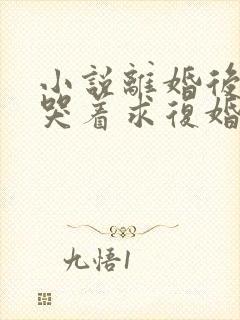 小说離婚後
哭着求復婚
九悟1